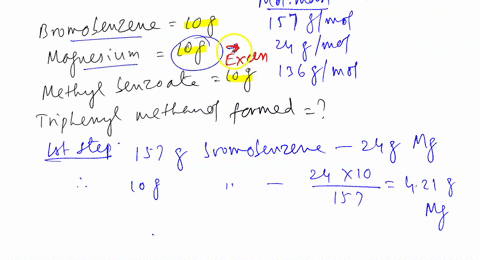 Mol. mass
Bromobenzene = 10g 157 g/mol
Magnesium = 10g → Excess 24 g/mol
Methyl benzoate = 10g 136 g/mol
Triphenyl methanol formed = ?
1st step: 157 g bromobenzene — 24g Mg
∴ 10g " — 24 × 10 / 157 = 4.21 g Mg